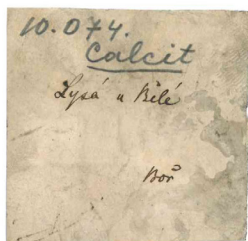 10.074.
Calcit
Lysá u Bělé
Boř